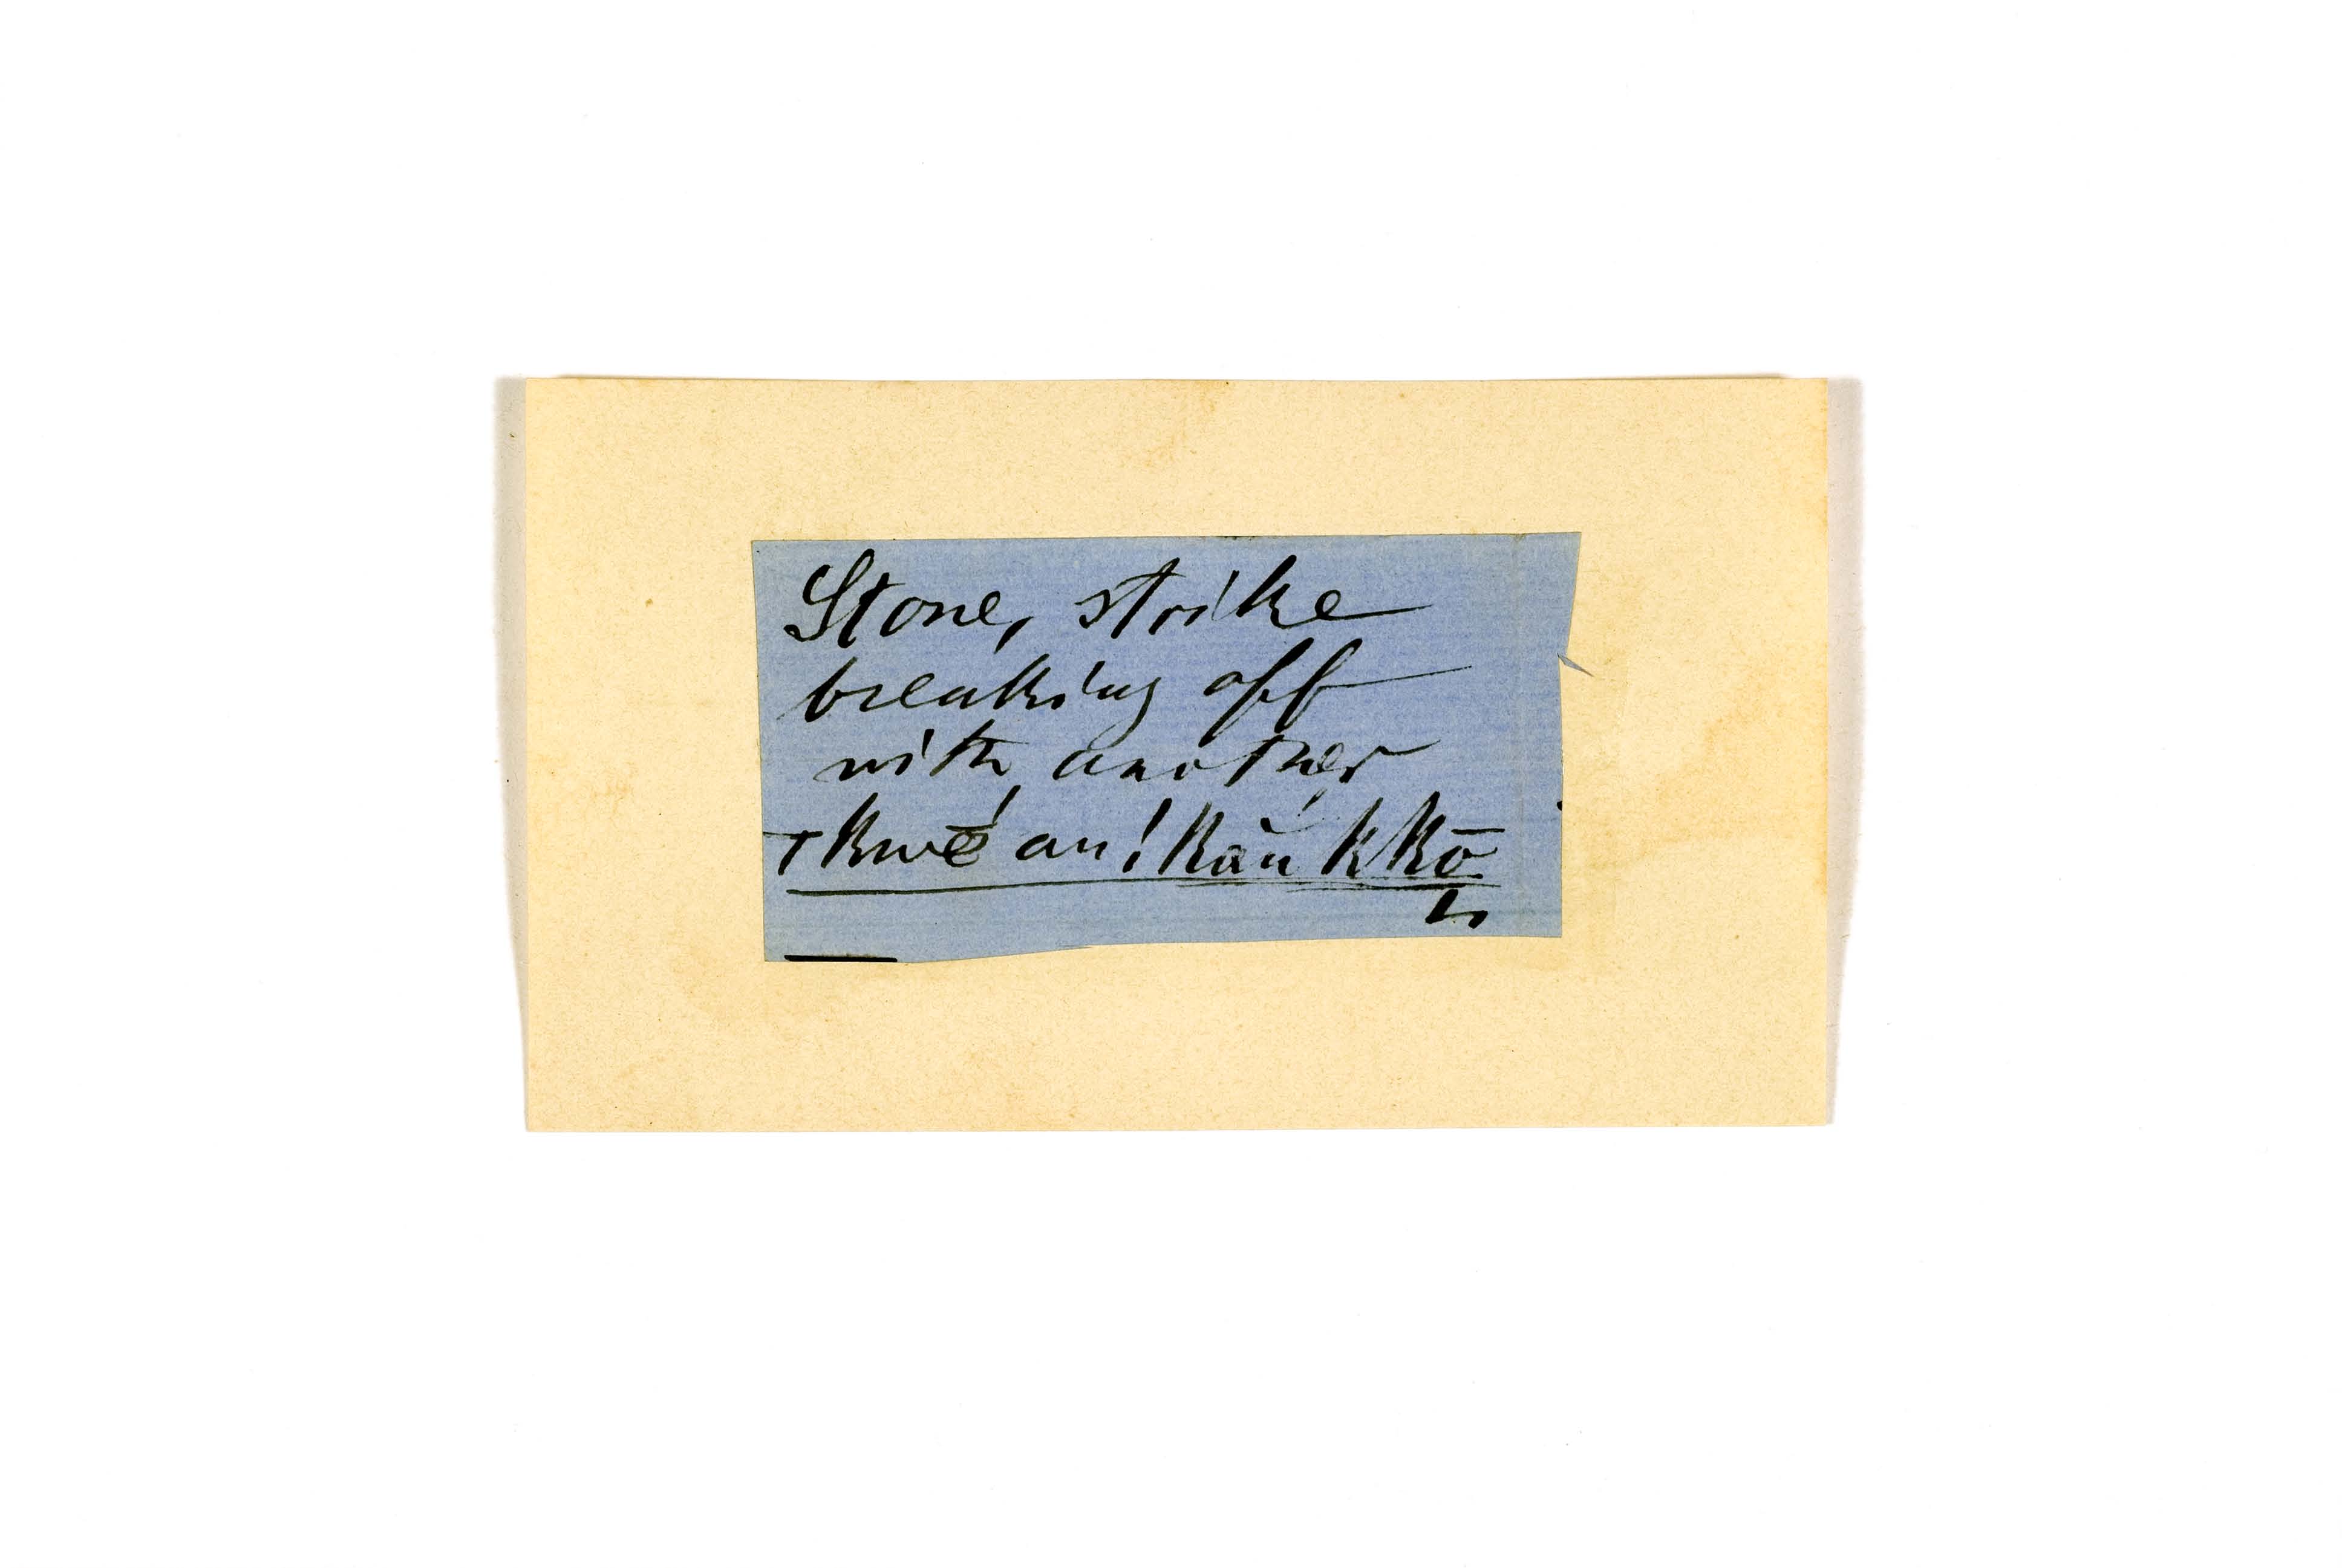 Stone, strike
breaking off
with another
!kwé an ! kau k kō